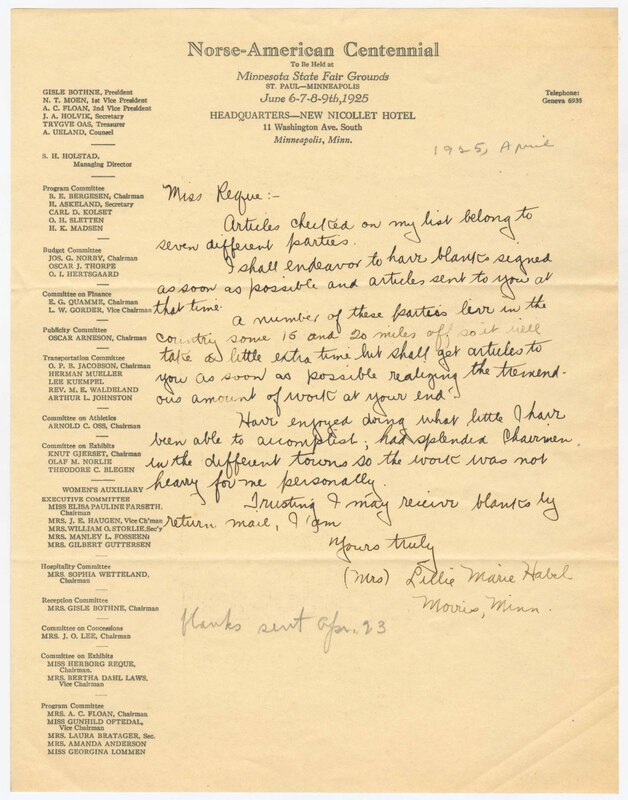 Norse-American Centennial
To Be Held at
Minnesota State Fair Grounds
ST. PAUL—MINNEAPOLIS
June 6-7-8-9th, 1925
HEADQUARTERS—NEW NICOLLET HOTEL
11 Washington Ave. South
Minneapolis, Minn.
Telephone:
Geneva 6935
GISLE BOTHNE, President
N. T. MOEN, 1st Vice President
A. C. FLOAN, 2nd Vice President
J. A. HOLVIK, Secretary
TRYGVE OAS, Treasurer
A. UELAND, Counsel
S. H. HOLSTAD,
Managing Director
Program Committee
B. E. BERGESEN, Chairman
H. ASKELAND, Secretary
CARL D. KOLSET
O. H. SLETTEN
H. K. MADSEN
Budget Committee
JOS. G. NORBY, Chairman
OSCAR J. THORPE
O. I. HERTSGAARD
Committee on Finance
E. G. QUAMME, Chairman
L. W. GORDER, Vice Chairman
Publicity Committee
OSCAR ARNESON, Chairman
Transportation Committee
O. P. B. JACOBSON, Chairman
HERMAN MUELLER
LEE KUEMPEL
REV. M. E. WALDELAND
ARTHUR L. JOHNSTON
Committee on Athletics
ARNOLD C. OSS, Chairman
Committee on Exhibits
KNUT GJERSET, Chairman
OLAF M. NORLIE
THEODORE C. BLEGEN
WOMEN'S AUXILIARY
EXECUTIVE COMMITTEE
MISS ELISA PAULINE FARSETH,
Chairman
MRS. J. E. HAUGEN, Vice Ch'man
MRS. WILLIAM O. STORLIE, Sec'y
MRS. MANLEY L. FOSSEEN
MRS. GILBERT GUTTERSEN
Hospitality Committee
MRS. SOPHIA WETTELAND,
Chairman
Reception Committee
MRS. GISLE BOTHNE, Chairman
Committee on Concessions
MRS. J. O. LEE, Chairman
Committee on Exhibits
MISS HERBORG REQUE,
Chairman.
MRS. BERTHA DAHL LAWS,
Vice Chairman
Program Committee
MRS. A. C. FLOAN, Chairman
MISS GUNHILD OFTEDAL,
Vice Chairman
MRS. LAURA BRATAGER, Sec.
MRS. AMANDA ANDERSON
MISS GEORGINA LOMMEN
1925, April
Miss Reque:-
Articles checked on my list belong to
seven different parties.
I shall endeavor to have blanks signed
as soon as possible and articles sent to you at
that time.
A number of these parties live in the
country some 15 and 20 miles off so it will
take a little extra time but shall get articles to
you as soon as possible realizing the tremend-
ous amount of work at your end.
Have enjoyed doing what little I have
been able to accomplish; had splended Chairmen
in the different towns so the work was not
heavy for me personally.
Trusting I may receive blanks by
return mail, I am
Yours truly
(Mrs) Lillie Marie Habel
Morris, Minn.
blanks sent Apr. 23